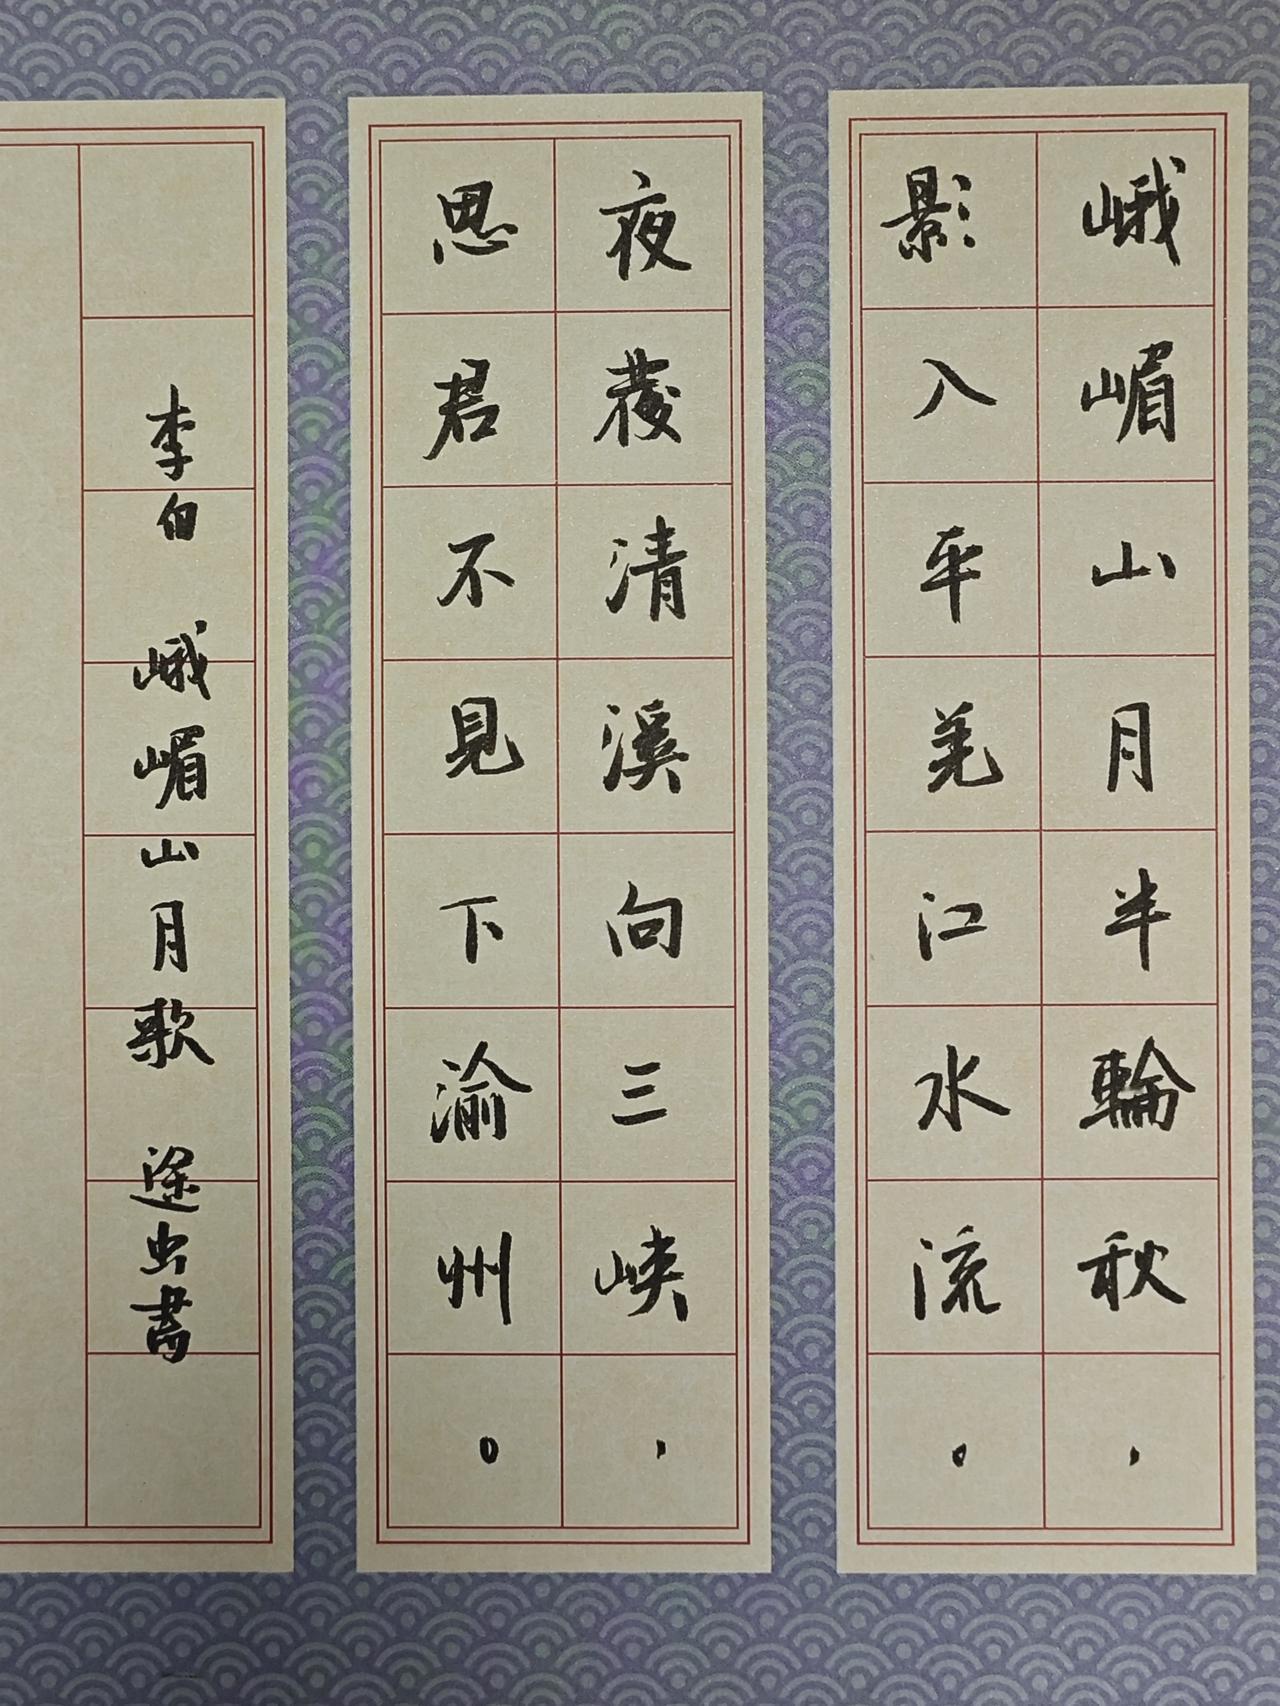 峨嵋山月半輪秋，
影入平羌江水流。
夜發清溪向三峽，
思君不見下渝州。
李白 峨嵋山月歌 途虫書